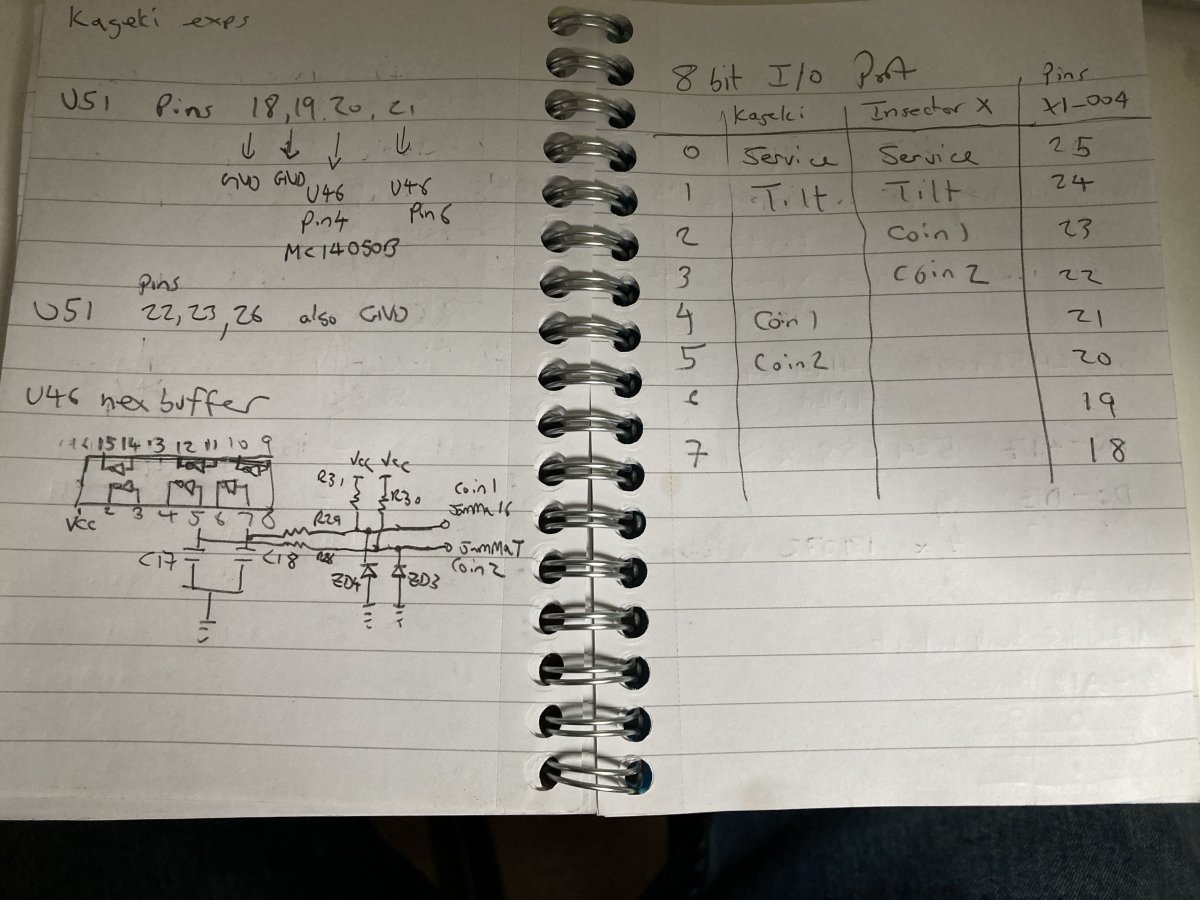 Kageki exps
U51 Pins 18,19,20,21
GND GND U46 U46
Pin4 Pin6
MC14050B
Pins
U51 22,23,26 also GND
U46 hex buffer
16 15 14 13 12 11 10 9
Vcc 2 3 4 5 6 7 8
Vcc Vcc
R31 R30
Coin1
Jamma 16
R29
C17 C18 R28 JammaT
Coin2
ZD4 ZD3
8 bit I/O Port
Pins
Kageki Insector X X1-004
0 Service Service 25
1 Tilt Tilt 24
2 Coin1 23
3 Coin2 22
4 Coin1 21
5 Coin2 20
6 19
7 18